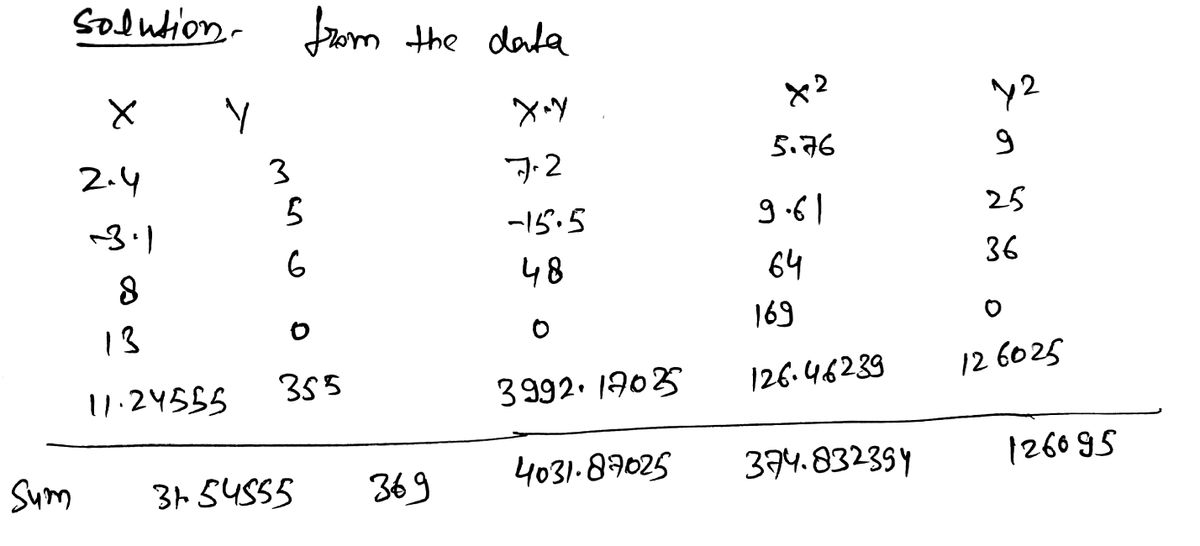 Solution- from the data
X Y X·Y X² Y²
2.4 3 7.2 5.76 9
-3.1 5 -15.5 9.61 25
8 6 48 64 36
13 0 0 169 0
11.24555 355 3992.17025 126.46239 126025
Sum 31.54555 369 4031.87025 374.832394 126095